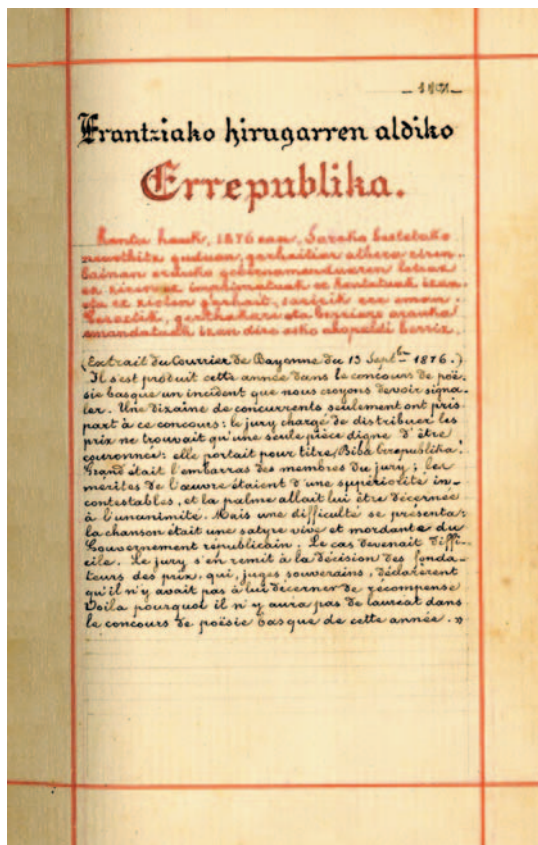 Frantziako hirugarren aldiko
Errepublika.
Kanta hauk, 1876 ean, Sarako bestetako
neurthitz guduan, garhaitiar athera ziren.
Bainan orduko gobernamenduaren beldurrez
ez ziren ez imprimatuak ez kantatuak izan
eta ez zioten garhait, saririk ere eman.
Geroztik, gerthakari eta berriere orduko
emandatuak izan dire asko ahopaldi berriz.
(Extrait du Courrier de Bayonne du 13 Septbre 1876.)
Il s'est produit cette année dans le concours de poë-
sie basque un incident que nous croyons devoir signa-
ler. Une dixaine de concurrents seulement ont pris
part à ce concours: le jury chargé de distribuer les
prix ne trouvait qu'une seule pièce digne d'être
couronnée: elle portait pour titre, Biba Errepublika!
Grand était l'embarras des membres du jury; les
mérites de l'œuvre étaient d'une supériorité in-
contestables, et la palme allait lui être décernée
à l'unanimité. Mais une difficulté se présenta:
la chanson était une satyre vive et mordante du
Gouvernement républicain. Le cas devenait diffi-
cile. Le jury s'en remit à la décision des fonda-
teurs des prix, qui, juges souverains, déclarèrent
qu'il n'y avait pas à lui décerner de récompense
Voila pourquoi il n'y aura pas de lauréat dans
le concours de poësie basque de cette année. »